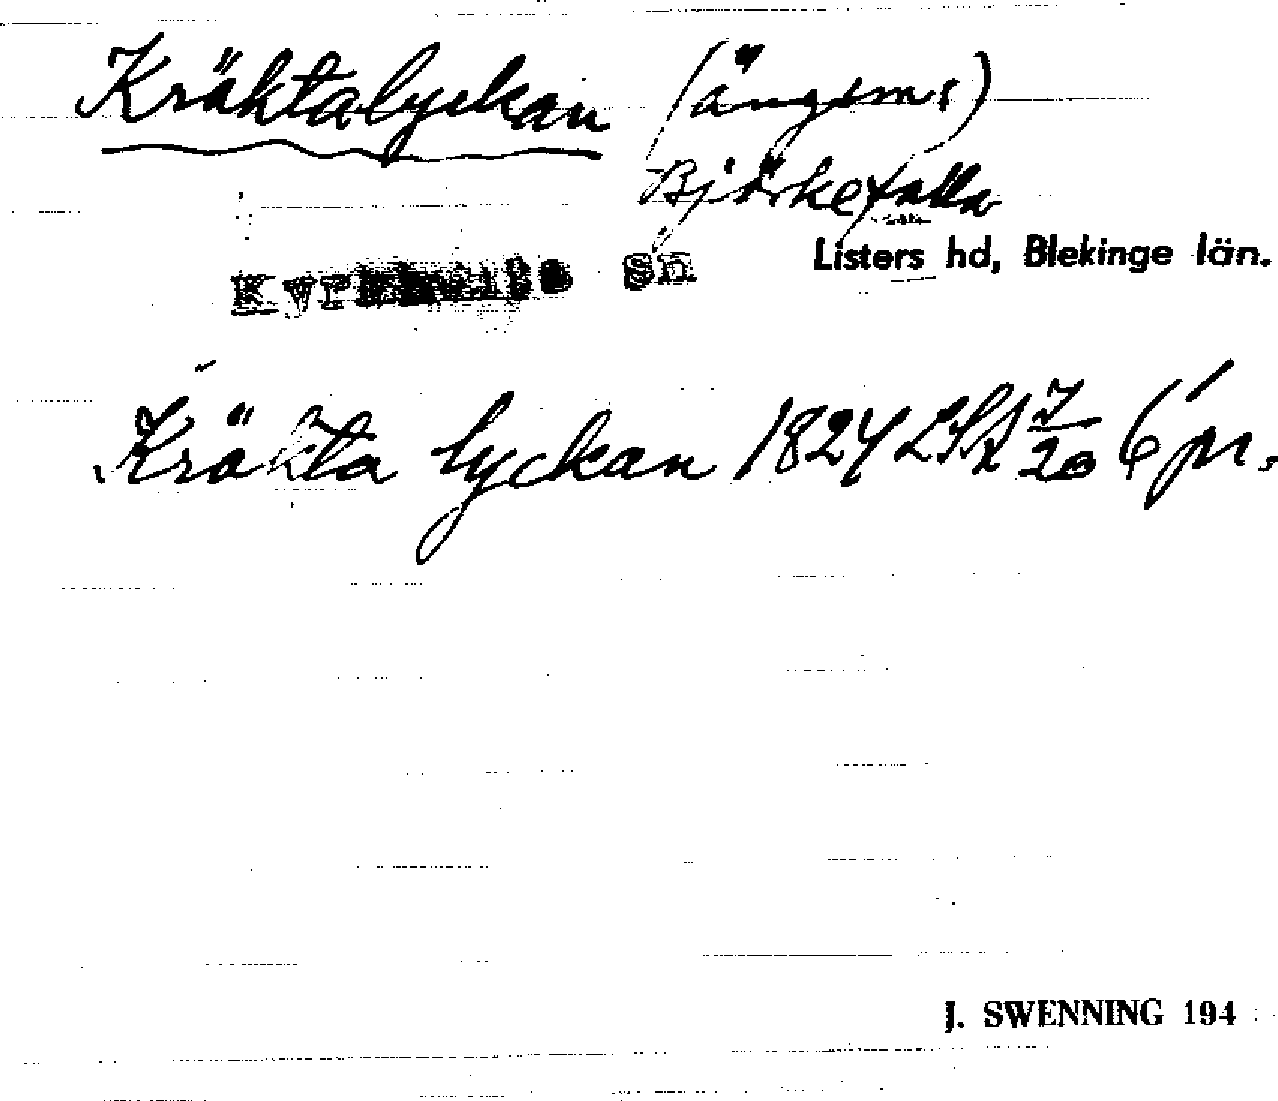 Kräktalyckan (ängsms)
Björkefalla
Kyrkhults Sn Listers hd, Blekinge län.
Kräkta lyckan 1824 LSA 7/20 6 pr.
J. SWENNING 194